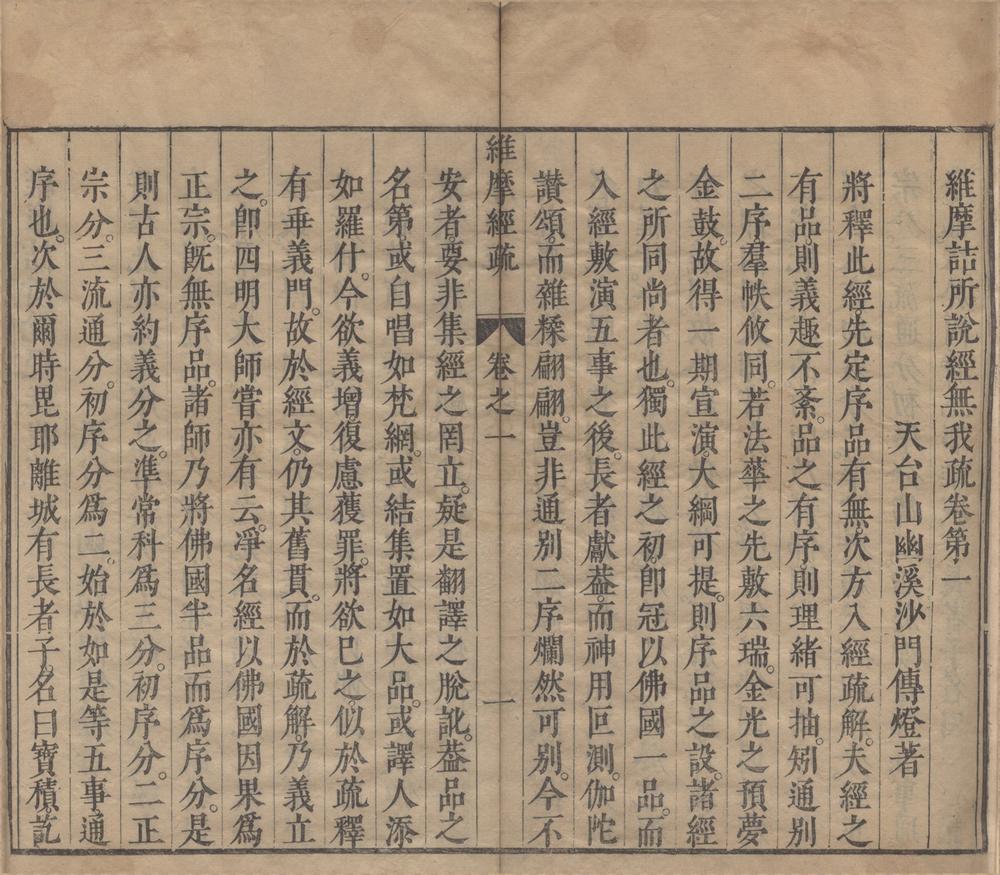 維摩詰所說經無我疏卷第一
天台山幽溪沙門傳燈著
將釋此經先定序品有無。次方入經疏解。夫經之
有品。則義趣不紊。品之有序。則理緒可抽。矧通別
二序。羣帙攸同。若法華之先敷六瑞。金光之預夢
金鼓。故得一期宣演。大綱可提。則序品之設。諸經
之所同尚者也。獨此經之初。卽冠以佛國一品。而
入經敷演五事之後。長者獻葢。而神用叵測。伽陀
讚頌。而雜糅翩翩。豈非通別二序爛然可別。今不
維摩經疏 卷之一 一
安者。要非集經之罔立。疑是翻譯之脫訛。葢品之
名第。或自唱如梵網。或結集置如大品。或譯人添
如羅什。今欲義增。復慮獲罪。將欲已之。似於疏釋
有乖義門。故於經文。仍其舊貫。而於疏解。乃義立
之。卽四明大師嘗亦有云。淨名經以佛國因果爲
正宗。旣無序品。諸師乃將佛國半品而爲序分。是
則古人亦約義分之。準常科爲三分。初序分。二正
宗分。三流通分。初序分爲二。始於如是等五事通
序也。次於爾時毘耶離城有長者子。名曰寶積。訖